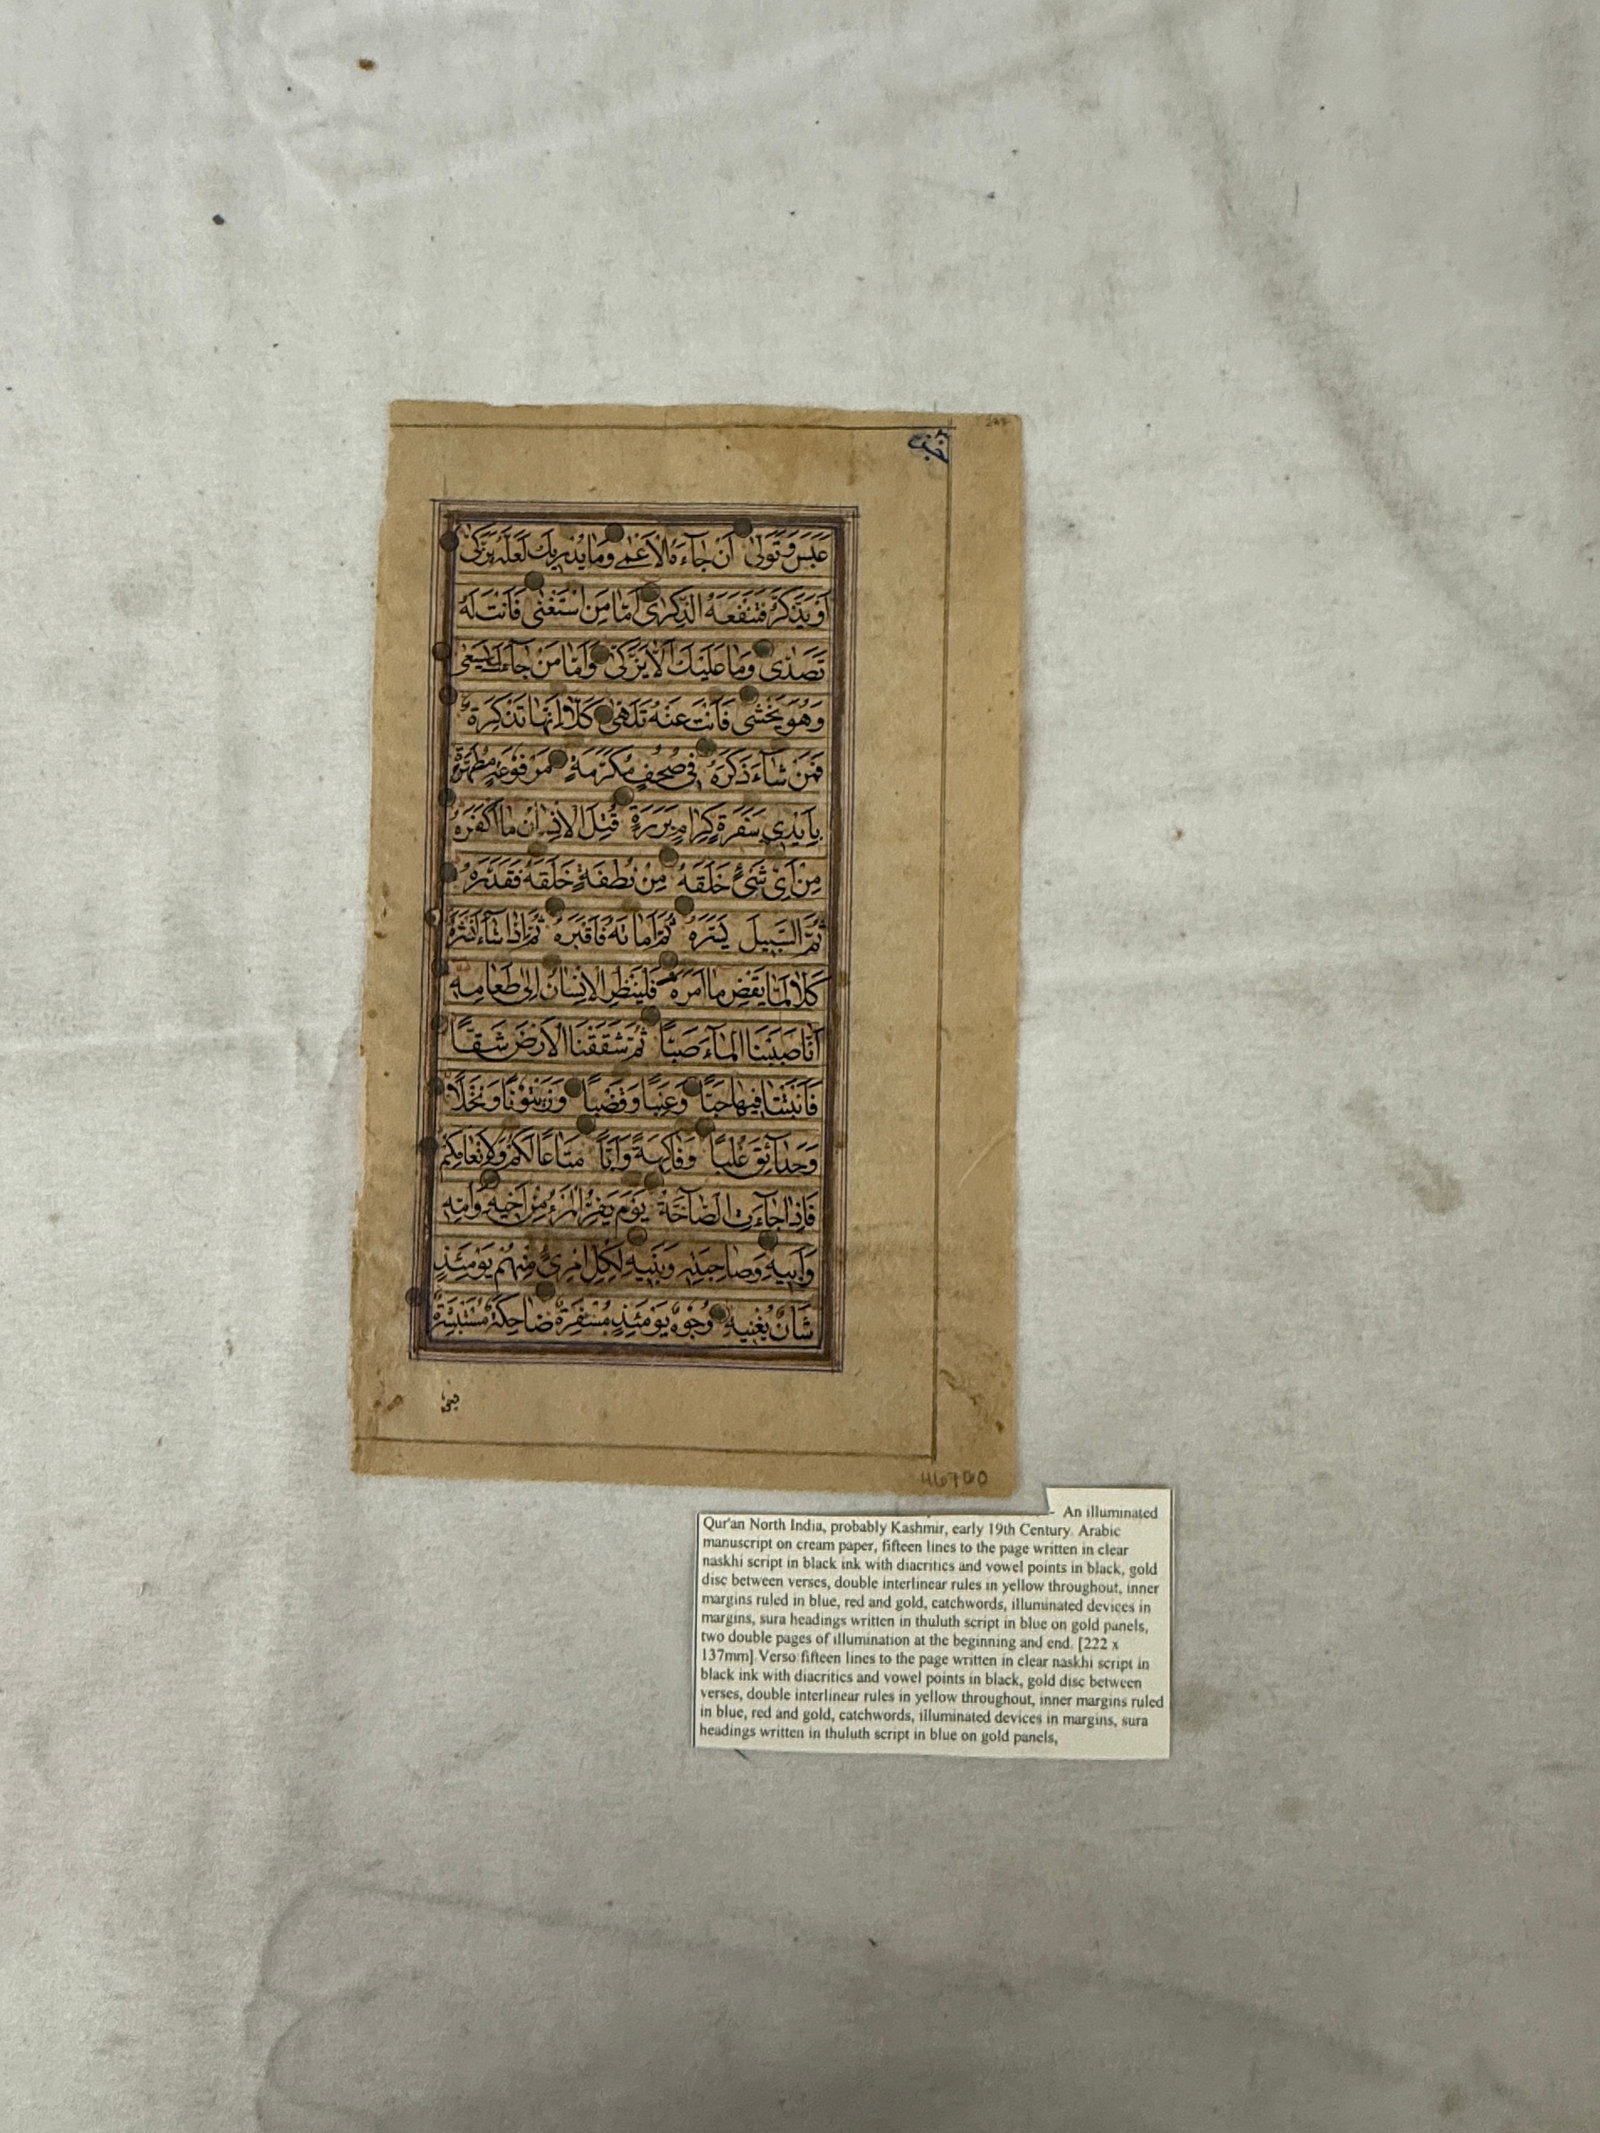 عَبَسَ وَتَوَلّٰى اَنْ جَآءَهُ الْاَعْمٰى وَمَا يُدْرِيكَ لَعَلَّهُ يَزَّكّٰى
اَوْ يَذَّكَّرُ فَتَنْفَعَهُ الذِّكْرٰى اَمَّا مَنِ اسْتَغْنٰى فَاَنْتَ لَهُ
تَصَدّٰى وَمَا عَلَيْكَ اَلَّا يَزَّكّٰى وَاَمَّا مَنْ جَآءَكَ يَسْعٰى
وَهُوَ يَخْشٰى فَاَنْتَ عَنْهُ تَلَهّٰى كَلَّا اِنَّهَا تَذْكِرَةٌ
فَمَنْ شَآءَ ذَكَرَهُ فِي صُحُفٍ مُكَرَّمَةٍ مَرْفُوعَةٍ مُطَهَّرَةٍ
بِاَيْدِي سَفَرَةٍ كِرَامٍ بَرَرَةٍ قُتِلَ الْاِنْسَانُ مَا اَكْفَرَهُ
مِنْ اَيِّ شَيْءٍ خَلَقَهُ مِنْ نُطْفَةٍ خَلَقَهُ فَقَدَّرَهُ
ثُمَّ السَّبِيلَ يَسَّرَهُ ثُمَّ اَمَاتَهُ فَاَقْبَرَهُ ثُمَّ اِذَا شَآءَ اَنْشَرَهُ
كَلَّا لَمَّا يَقْضِ مَا اَمَرَهُ فَلْيَنْظُرِ الْاِنْسَانُ اِلٰى طَعَامِهِ
اَنَّا صَبَبْنَا الْمَآءَ صَبًّا ثُمَّ شَقَقْنَا الْاَرْضَ شَقًّا
فَاَنْبَتْنَا فِيهَا حَبًّا وَعِنَبًا وَقَضْبًا وَزَيْتُونًا وَنَخْلًا
وَحَدَآئِقَ غُلْبًا وَفَاكِهَةً وَاَبًّا مَتَاعًا لَكُمْ وَلِاَنْعَامِكُمْ
فَاِذَا جَآءَتِ الصَّآخَّةُ يَوْمَ يَفِرُّ الْمَرْءُ مِنْ اَخِيهِ وَاُمِّهِ
وَاَبِيهِ وَصَاحِبَتِهِ وَبَنِيهِ لِكُلِّ امْرِئٍ مِنْهُمْ يَوْمَئِذٍ
شَاْنٌ يُغْنِيهِ وُجُوهٌ يَوْمَئِذٍ مُسْفِرَةٌ ضَاحِكَةٌ مُسْتَبْشِرَةٌ
46760
- An illuminated
Qur'an North India, probably Kashmir, early 19th Century. Arabic
manuscript on cream paper, fifteen lines to the page written in clear
naskhi script in black ink with diacritics and vowel points in black, gold
disc between verses, double interlinear rules in yellow throughout, inner
margins ruled in blue, red and gold, catchwords, illuminated devices in
margins, sura headings written in thuluth script in blue on gold panels,
two double pages of illumination at the beginning and end. [222 x
137mm] Verso: fifteen lines to the page written in clear naskhi script in
black ink with diacritics and vowel points in black, gold disc between
verses, double interlinear rules in yellow throughout, inner margins ruled
in blue, red and gold, catchwords, illuminated devices in margins, sura
headings written in thuluth script in blue on gold panels,